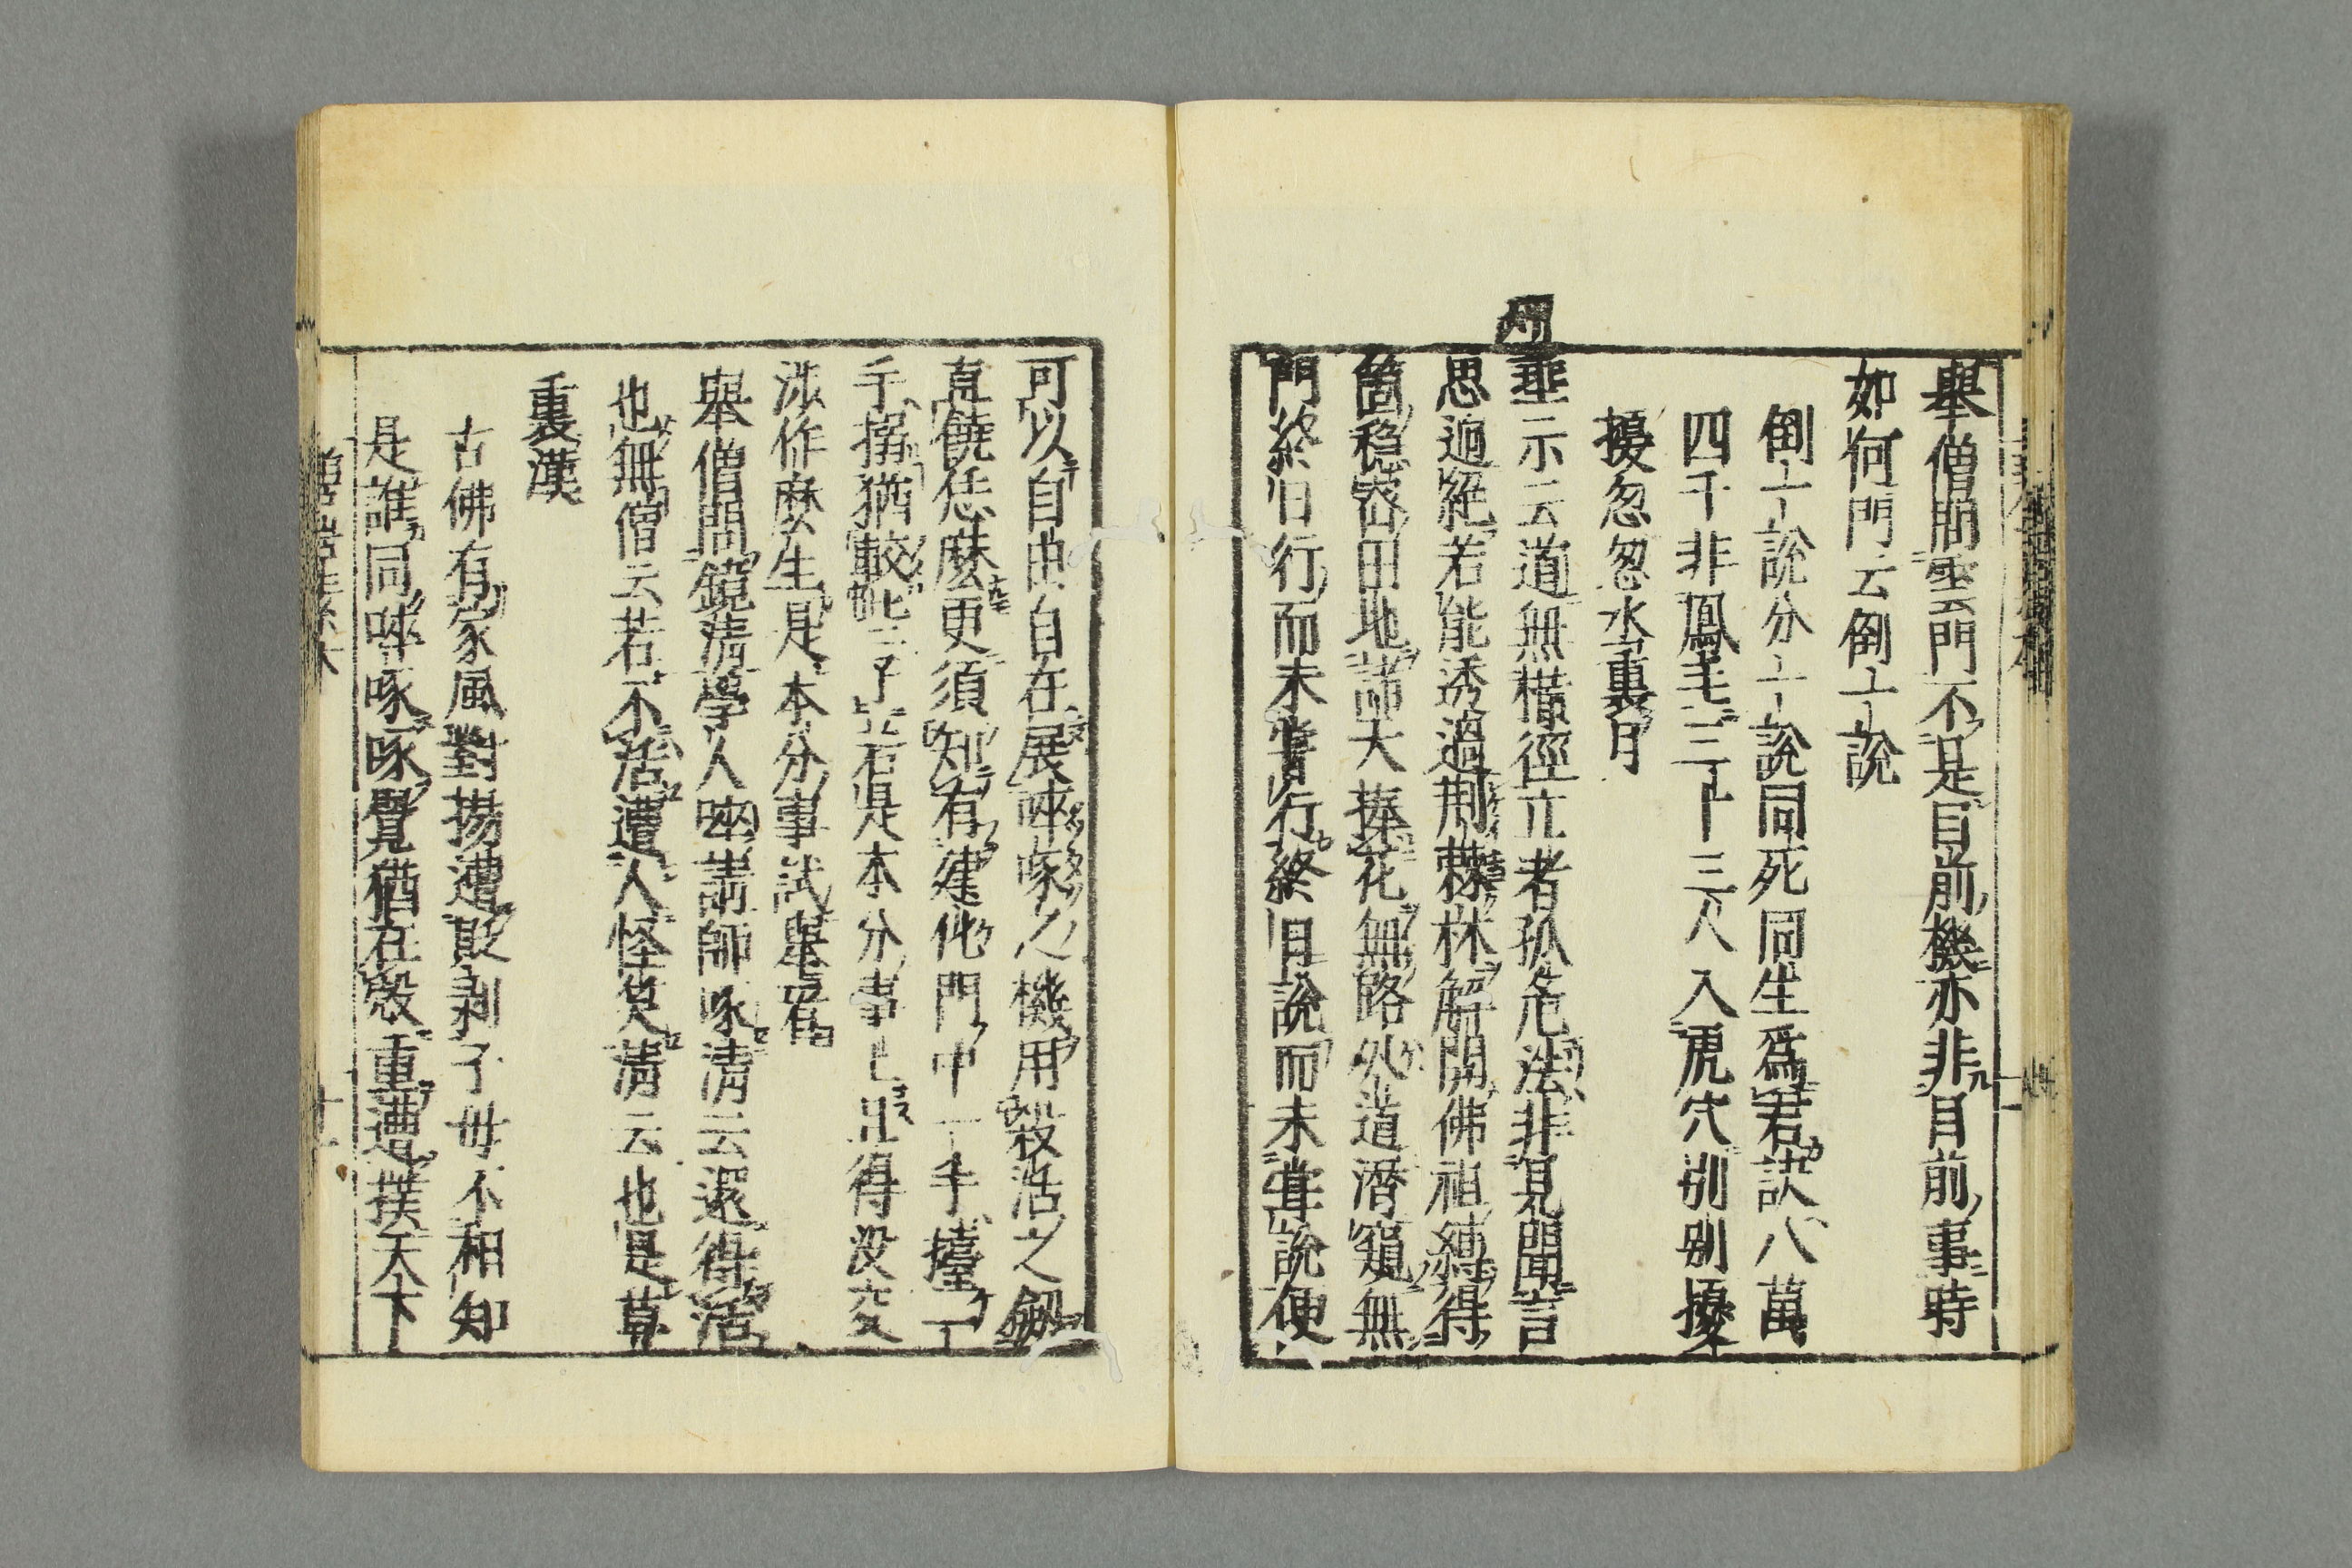 舉僧問雲門不是目前機亦非目前事時
如何門云倒一說
倒一說分一說同死同生爲君訣八萬
四千非鳳毛三十三人入虎穴別別擾
擾忽忽水裏月
垂示云道無橫徑立者孤危法非見聞言
思逈絕若能透過荊棘林解開佛祖縛得
箇穩密田地諸天捧花無路外道潛窺無
門終日行而未嘗行終日說而未嘗說便
可以自由自在展啐啄之機用殺活之劒
直饒恁麼更須知有建化門中一手擡一
手搦猶較些子若是本分事上且得沒交
涉作麼生是本分事試舉看
舉僧問鏡清學人啐請師啄清云還得活
也無僧云若不活遭人怪笑清云也是草
裏漢
古佛有家風對揚遭貶剝子母不相知
是誰同啐啄啄覺猶在殼重遭撲天下